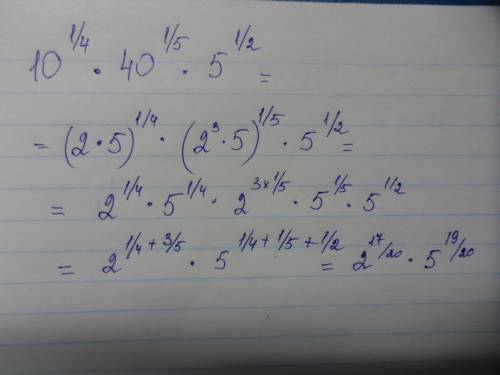 10^1/4 · 40^1/5 · 5^1/2 =
= (2·5)^1/4 · (2^3·5)^1/5 · 5^1/2 =
= 2^1/4 · 5^1/4 · 2^3×1/5 · 5^1/5 · 5^1/2
= 2^1/4+3/5 · 5^1/4+1/5+1/2 = 2^17/20 · 5^19/20